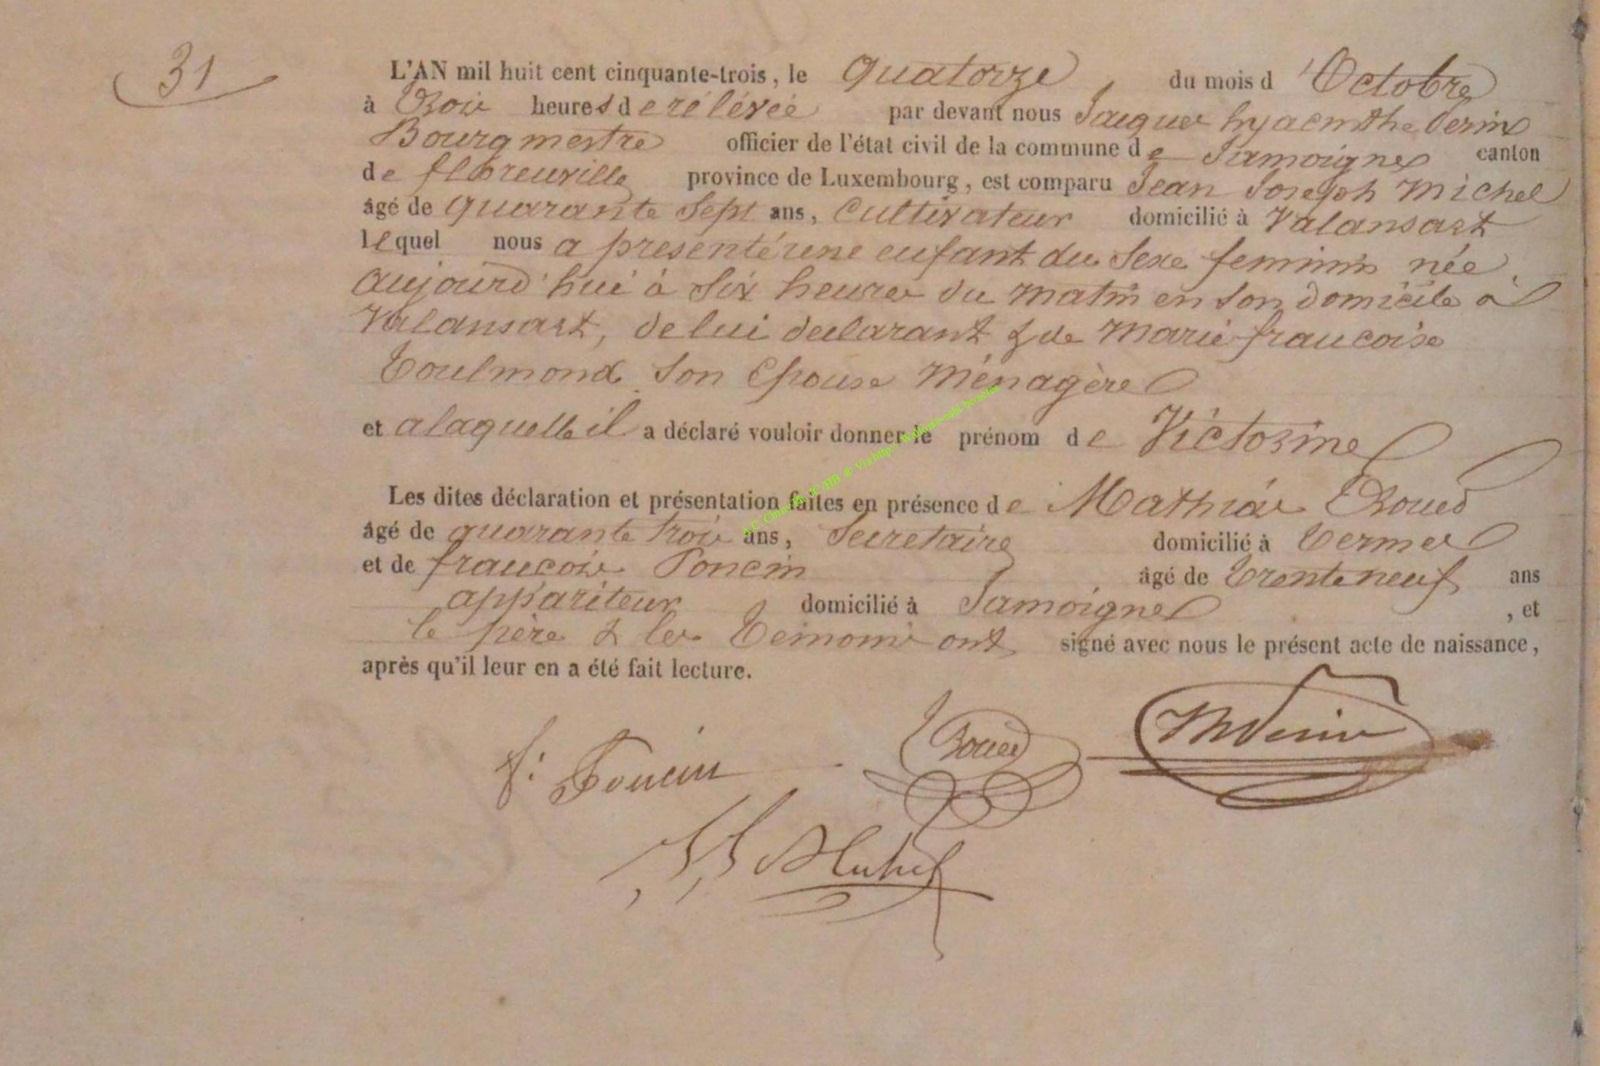 31
L'AN mil huit cent cinquante-trois, le quatorze du mois d'Octobre
à trois heures de rélévée par devant nous Jacques hyacinthe Perin
Bourgmestre officier de l'état civil de la commune de Jamoigne canton
de florenville province de Luxembourg, est comparu Jean Joseph Michel
âgé de quarante Sept ans, Cultivateur domicilié à Valansart
lequel nous a presenté une enfant du Sexe feminin née
aujourd'hui à Six heures du matin en son domicile à
Valansart, de lui declarant & de Marie francoise
Toulmond son Epouse Ménagère
et a laquelle il a déclaré vouloir donner le prénom de Victorine
Les dites déclaration et présentation faites en présence de Mathias
âgé de quarante trois ans, Secretaire domicilié à Termes
et de francois Poncin âgé de trente neuf ans
appariteur domicilié à Jamoigne, et
le père & les temoins ont signé avec nous le présent acte de naissance,
après qu'il leur en a été fait lecture.
f: Poncin
JJ Michel